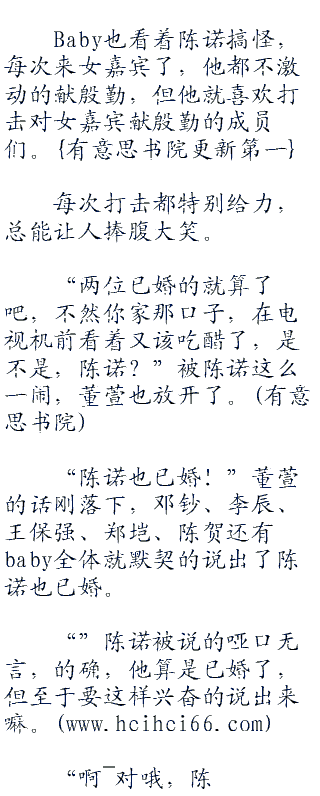 Baby也看着陈诺搞怪，
每次来女嘉宾了，他都不激
动的献殷勤，但他就喜欢打
击对女嘉宾献殷勤的成员
们。{有意思书院更新第一}
每次打击都特别给力，
总能让人捧腹大笑。
“两位已婚的就算了
吧，不然你家那口子，在电
视机前看着又该吃醋了，是
不是，陈诺？”被陈诺这么
一闹，董萱也放开了。(有意
思书院)
“陈诺也已婚！”董萱
的话刚落下，邓钞、李辰、
王保强、郑垲、陈贺还有
baby全体就默契的说出了陈
诺也已婚。
“”陈诺被说的哑口无
言，的确，他算是已婚了，
但至于要这样兴奋的说出来
嘛。(www.hcihci66.com)
“啊¯对哦，陈